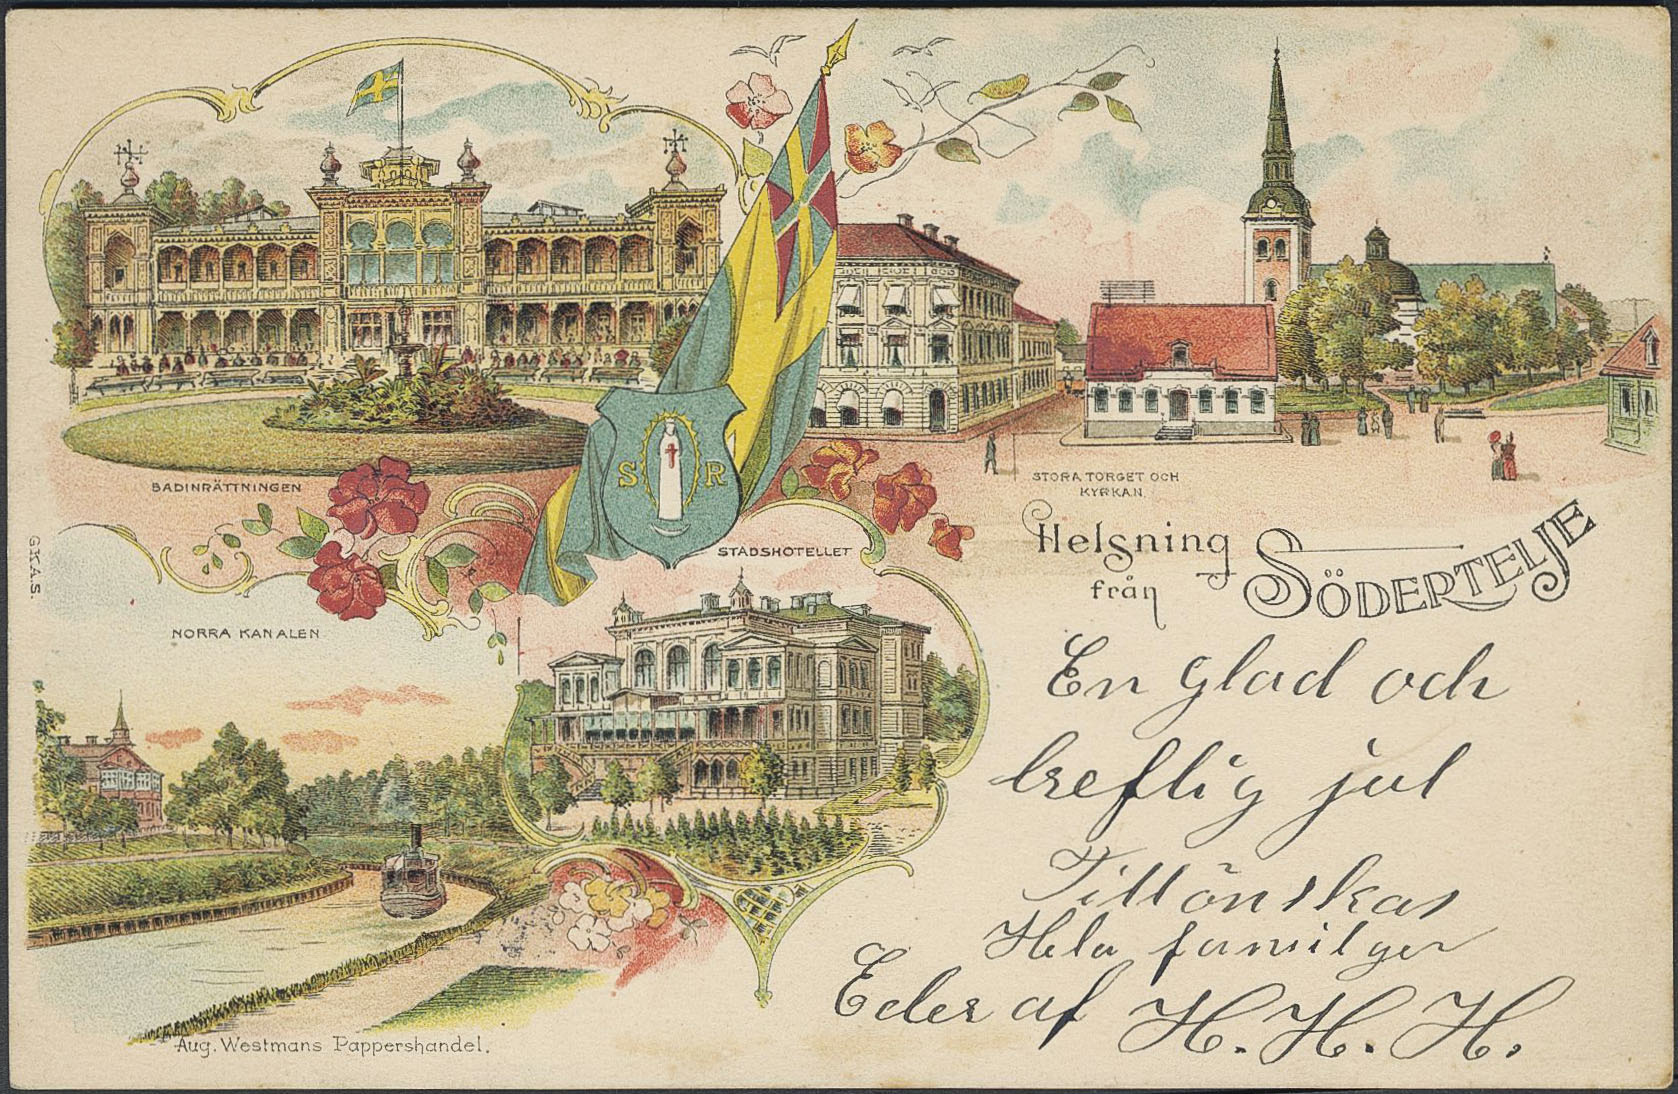 BADINRÄTTNINGEN
S R
STORA TORGET OCH
KYRKAN.
STADSHOTELLET
Helsning
från SÖDERTELJE
G.K.A.S.
NORRA KANALEN
En glad och
treflig jul
Tillönskas
Hela familjen
Eder af H. H. H.
Aug. Westmans Pappershandel.